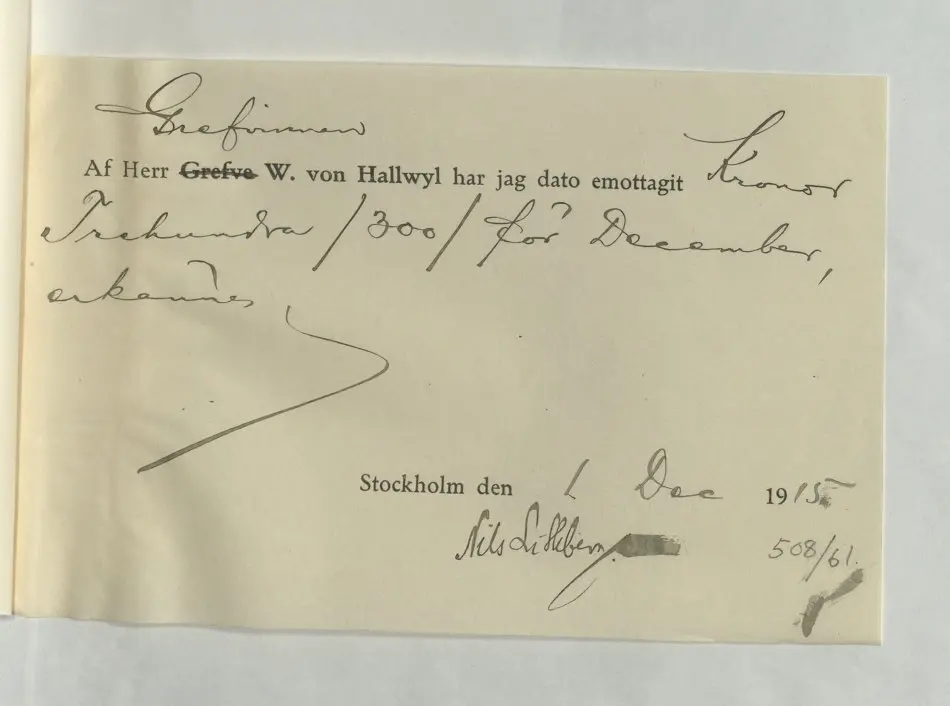 Grefvinnan
Af Herr Grefve W. von Hallwyl har jag dato emottagit Kronor
Trehundra /300/ för December,
erkännes
Stockholm den 1 Dec 1915
Nils
508/61.